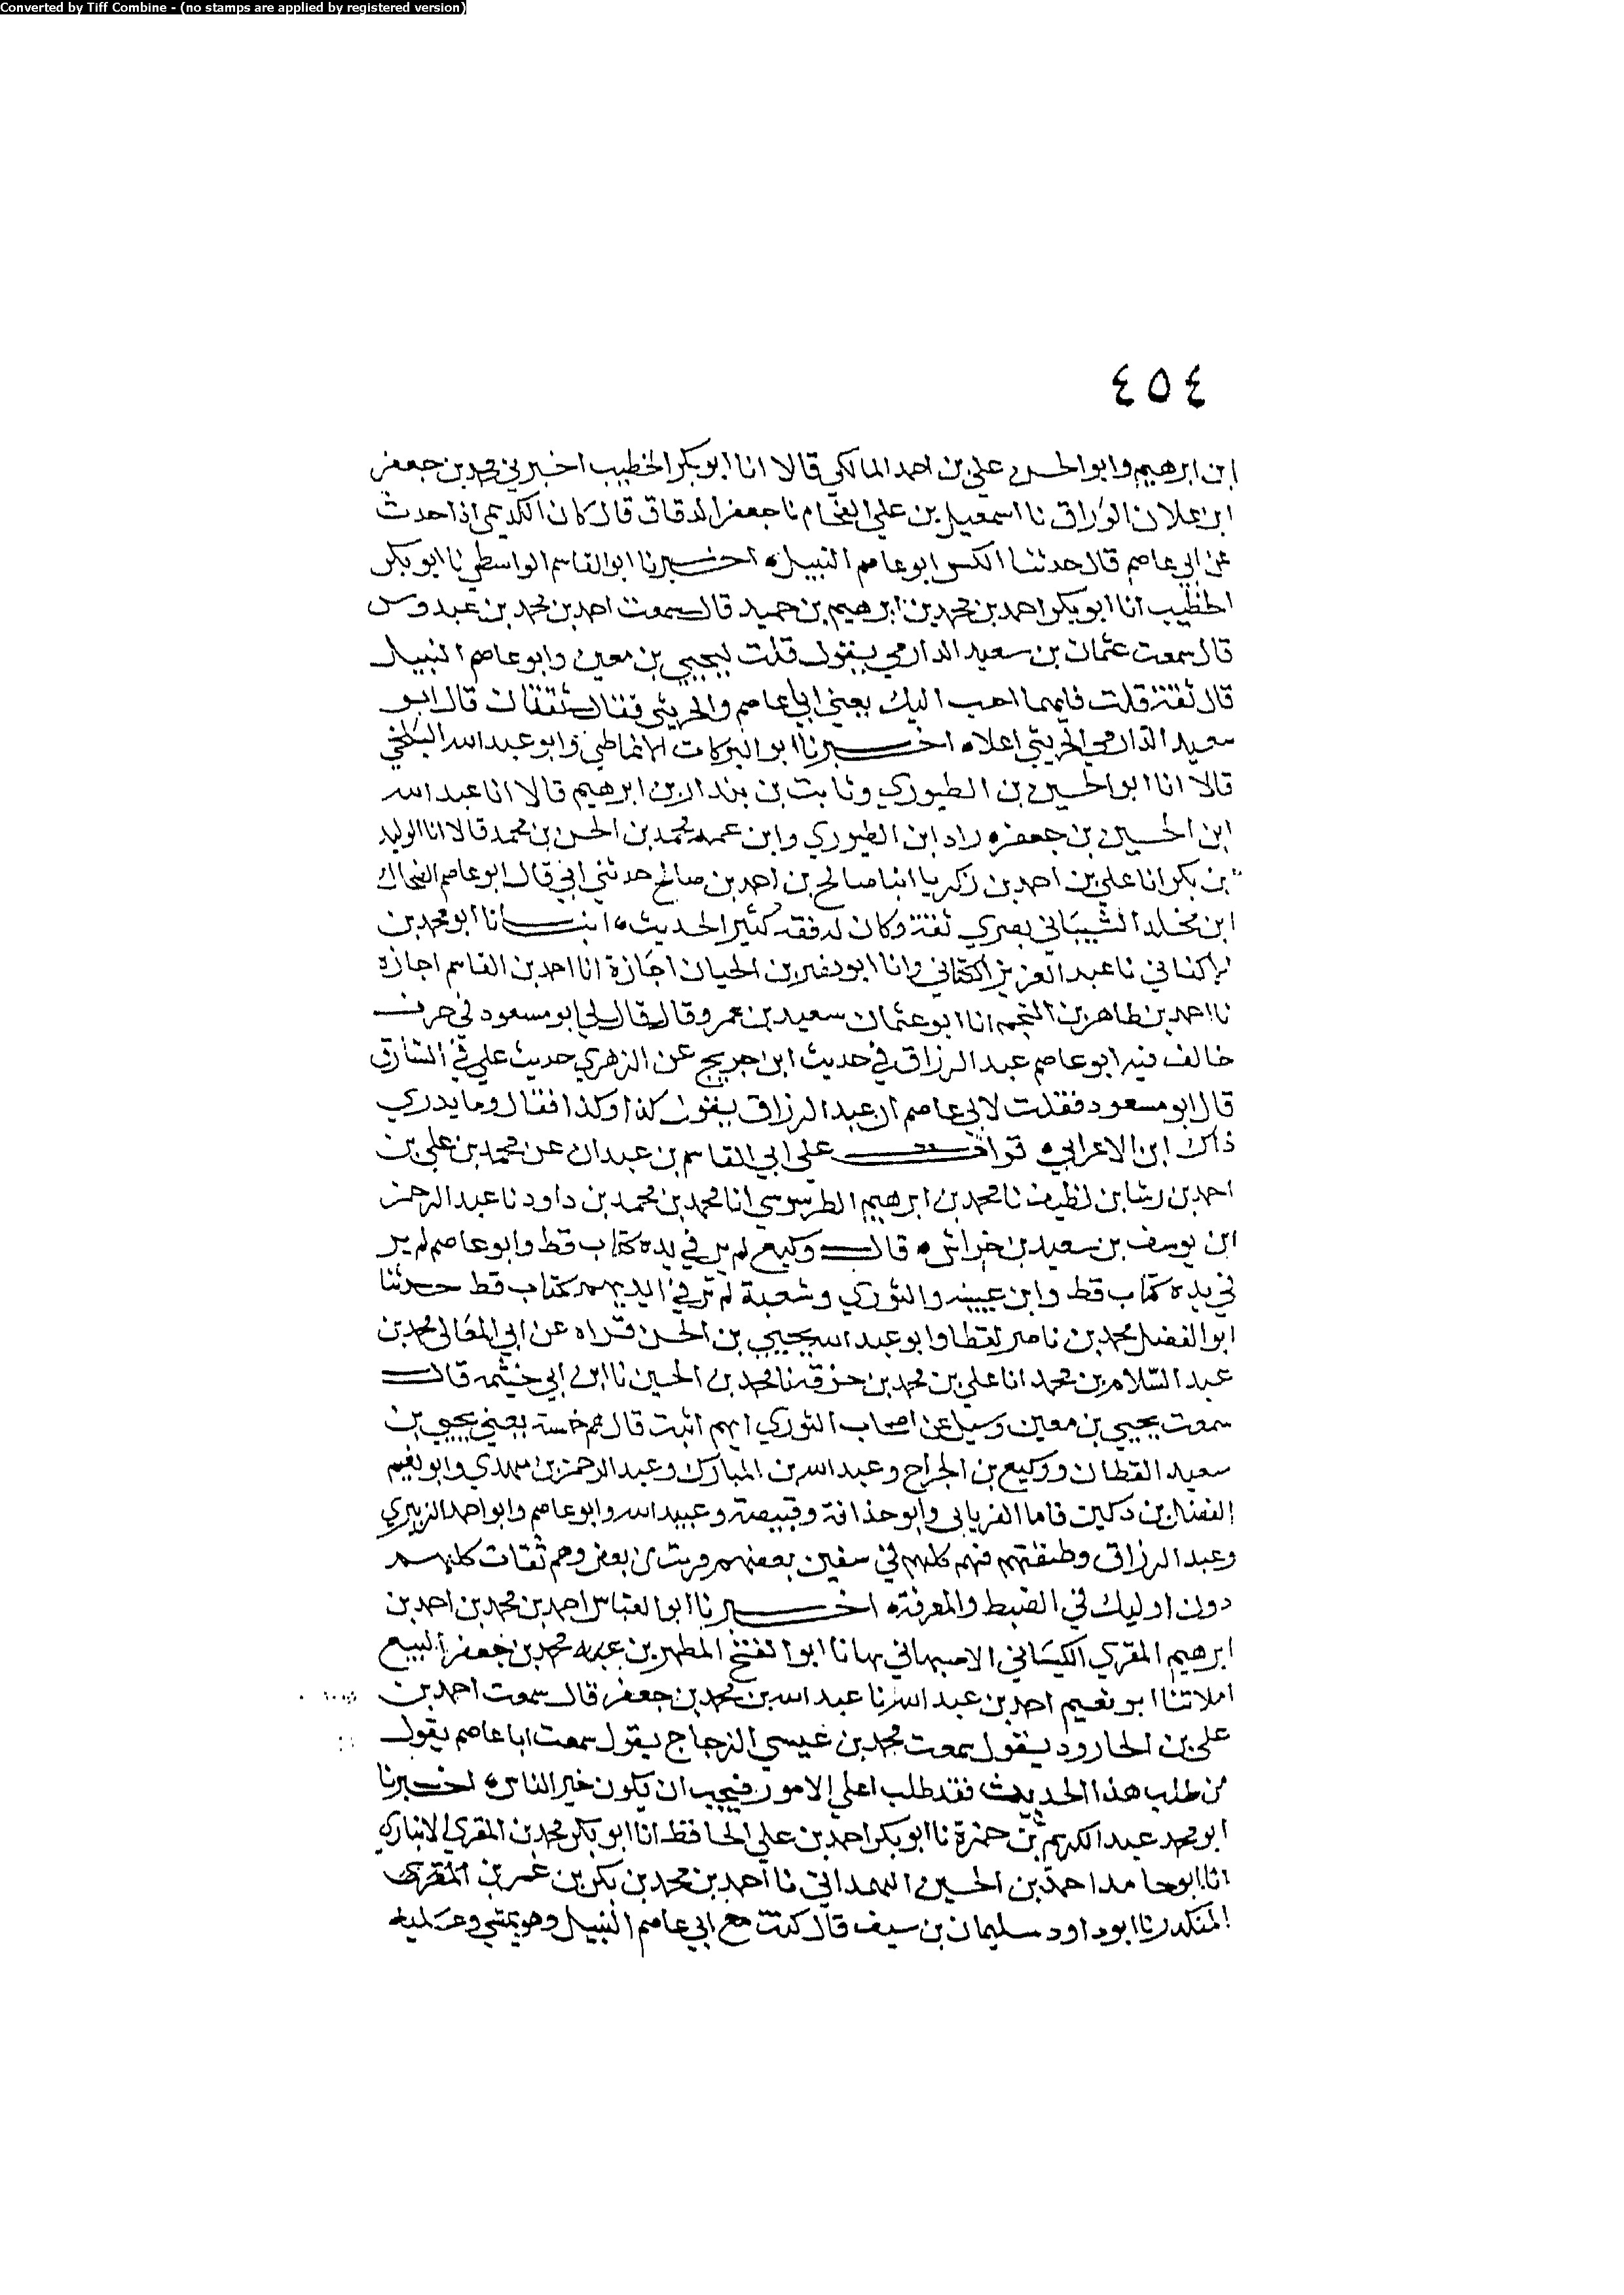 Converted by Tiff Combine - (no stamps are applied by registered version)
٤٥٤
ابن ابرهيم وابو الحسن علي بن احمد المالكي قالا انا ابو بكر الخطيب اخبرني محمد بن جعفر
ابن علان الوراق نا اسمعيل بن علي الفحام نا جعفر الدقاق قال كان الكديمي اذا حدث
عن ابي عاصم قال حدثنا الكيس ابو عاصم النبيل اخبرنا ابو القاسم الواسطي نا ابو بكر
الخطيب انا ابو بكر احمد بن محمد بن ابرهيم بن حميد قال سمعت احمد بن محمد بن عبدوس
قال سمعت عثمان بن سعيد الدارمي يقول قلت ليحيي بن معين وابو عاصم النبيل
قال ثقة قلت فايهما احب اليك يعني ابا عاصم والخريبي فقال ثقتان قال ابو
سعيد الدارمي الخريبي اعلاه اخبرنا ابو البركات الانماطي وابو عبد الله البلخي
قالا انا ابو الحسين بن الطيوري وثابت بن بندار بن ابرهيم قالا انا عبد الله
ابن الحسين بن جعفر زاد ابن الطيوري وابن عمه محمد بن الحسن بن محمد قالا انا الوليد
بن بكر انا علي بن احمد بن زكريا انبا صالح بن احمد بن صالح حدثني ابي قال ابو عاصم الضحاك
ابن مخلد الشيباني بصري ثقة وكان له فقه كثير الحديث انبانا ابو محمد بن
الاكفاني نا عبد العزيز الكتاني وانا ابو نصر بن الحبان اجازة انا احمد بن القاسم اجازة
نا احمد بن طاهر بن النجم انا ابو عثمان سعيد بن عمرو قال قال لي ابو مسعود في حرف
خالف فيه ابو عاصم عبد الرزاق في حديث ابن جريج عن الزهري حديث علي في الشارف
قال ابو مسعود فقلت لابي عاصم ان عبد الرزاق يقول كذا وكذا فقال وما يدري
ذاك ابن الاعرابي قرات علي ابي القاسم بن عبدان عن محمد بن علي بن
احمد بن رشا بن نظيف نا محمد بن ابرهيم الطرسوسي انا محمد بن محمد بن داود نا عبد الرحمن
ابن يوسف بن سعيد بن خراش قال وكيع لم ير في يده كتاب قط وابو عاصم لم ير
في يده كتاب قط وابن عيينه والثوري وشعبة لم تر في ايديهم كتاب قط حدثنا
ابو الفضل محمد بن ناصر لفظا وابو عبد الله يحيي بن الحسن قراه عن ابي المعالي محمد بن
عبد السلام بن محمد انا علي بن محمد بن خزفه نا محمد بن الحسين نا ابن ابي خيثمه قال
سمعت يحيي بن معين وسيل عن اصحاب الثوري ايهم اثبت قال هم خمسة يعني يحيي بن
سعيد القطان ووكيع بن الجراح وعبد الله بن المبارك وعبد الرحمن بن مهدي وابو نعيم
الفضل بن دكين فاما الفريابي وابو حذافة وقبيصة وعبيد الله وابو عاصم وابو احمد الزبيري
وعبد الرزاق وطبقتهم فهم كلهم في سفين بعضهم قريب من بعض وهم ثقات كلهم
دون اوليك في الضبط والمعرفة اخبرنا ابو العباس احمد بن محمد بن احمد بن
ابرهيم المقري الكيساني الاصبهاني بها نا ابو الفتح المطهر بن عبد محمد بن جعفر البيع
املا ثنا ابو نعيم احمد بن عبد الله نا عبد الله بن محمد بن جعفر قال سمعت احمد بن
علي بن الجارود يقول سمعت محمد بن عيسي الزجاج يقول سمعت ابا عاصم يقول
من طلب هذا الحديث فقد طلب اعلي الامور فيجب ان يكون خير الناس اخبرنا
ابو محمد عبد الكريم بن حمزة نا ابو بكر احمد بن علي الحافظ انا ابو بكر محمد بن المقري الانباري
انا ابو حامد احمد بن الحسين الهمداني نا احمد بن محمد بن بكر بن عمر بن المقري
المنكدر نا ابو داود سليمان بن سيف قال كنت مع ابي عاصم النبيل وهو يمشي وعليه